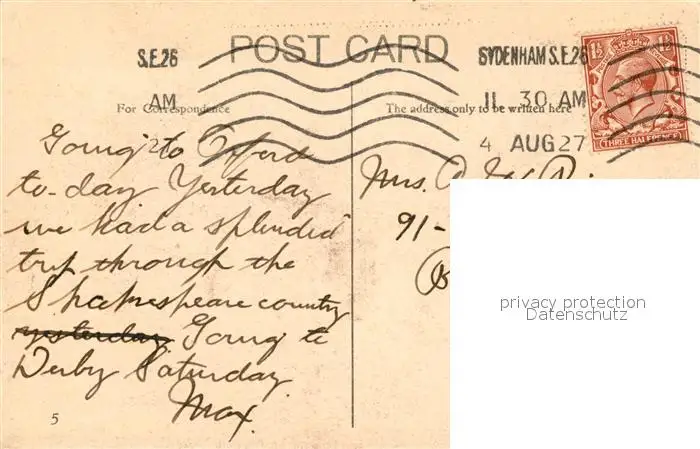 POST CARD
S.E.26
AM
SYDENHAM S.E.26
11 30 AM
4 AUG 27
1½ 1½
THREE HALFPENCE
For Correspondence
The address only to be written here
Going to Oxford
to-day Yesterday
we had a splendid
trip through the
Shakespeare country
yesterday Going to
Derby Saturday
Max.
Mrs.
91-
privacy protection
Datenschutz
5